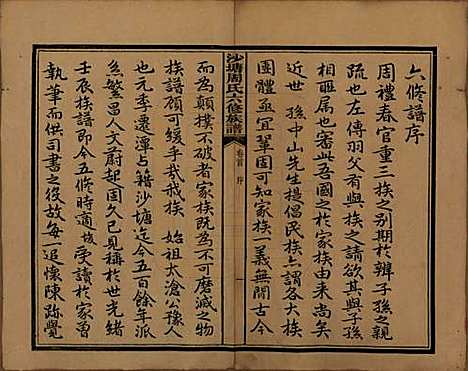 六修譜序
周禮春官重三族之別期於辨子孫之親
疏也左傳羽父有族之請欲其與子孫
相匪屆也審此吾國之於家族由來尚矣
近世 孫中山先生提倡民族上謂各大族
團體亟宜鞏固可知家族一義無閒古今
沙塘周氏六修族譜
卷首 序
一
而為顛撲不破者家族既為不可磨滅之物
族譜顧可緩乎哉我族 始祖太滄公豫人
也元季遷渾占籍沙塘迄今五百餘年派
系繁昌人文蔚起固久已見稱於世光緒
壬辰族譜即今五修時適成受讀於家曾
執筆而供司書之役故每一追懷陳跡覺